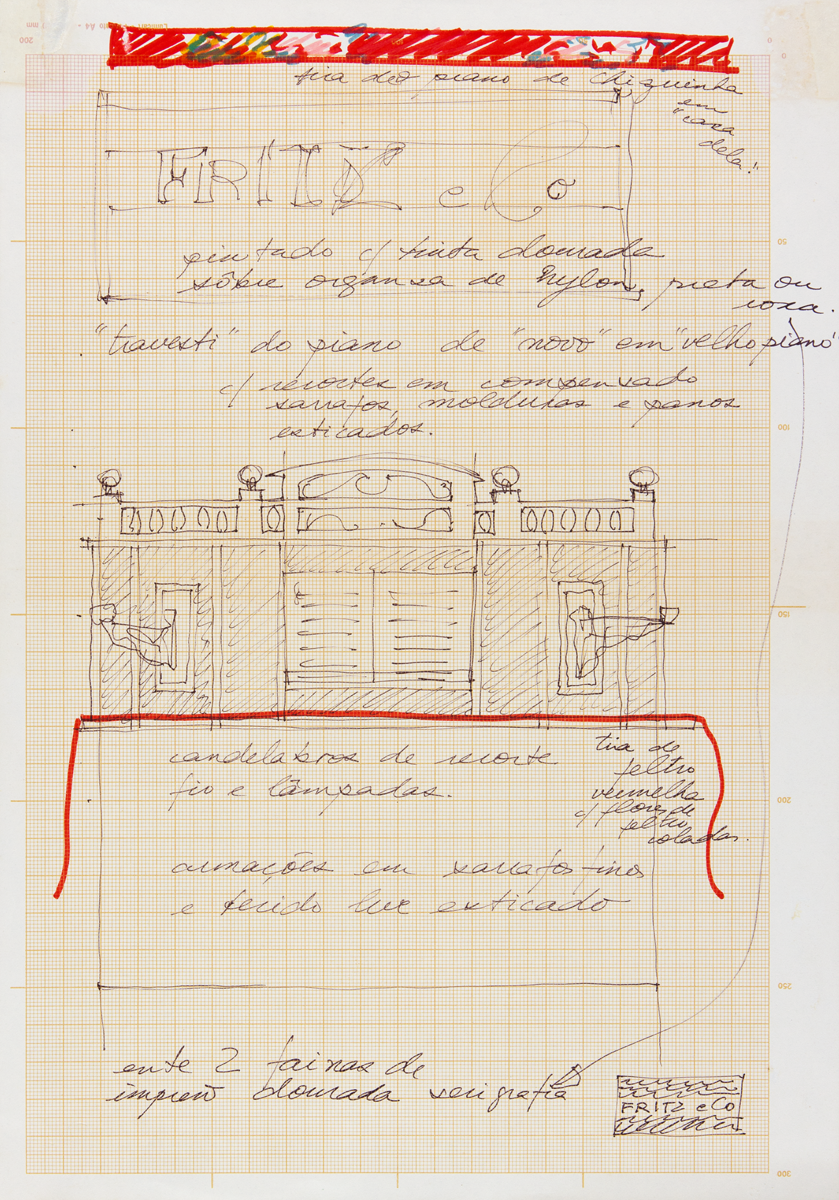 tira do piano de Chiquinha
em
"casa
dela!"
FRITZ e Co
pintado c/ tinta dourada
sôbre organsa de Nylon, preta ou
roxa.
"travesti" do piano de "novo" em "velho piano"
c/ recortes em compensado
sarrafos, molduras e panos
esticados.
candelabros de recorte
fio e lâmpadas.
tira de
feltro
vermelha
c/ flores de
feltro
coladas.
armações em sarrafos finos
e tecido leve esticado
ente 2 faixas de
dourada serigrafia
FRITZ e Co
200
0
0
50
100
150
200
250
300